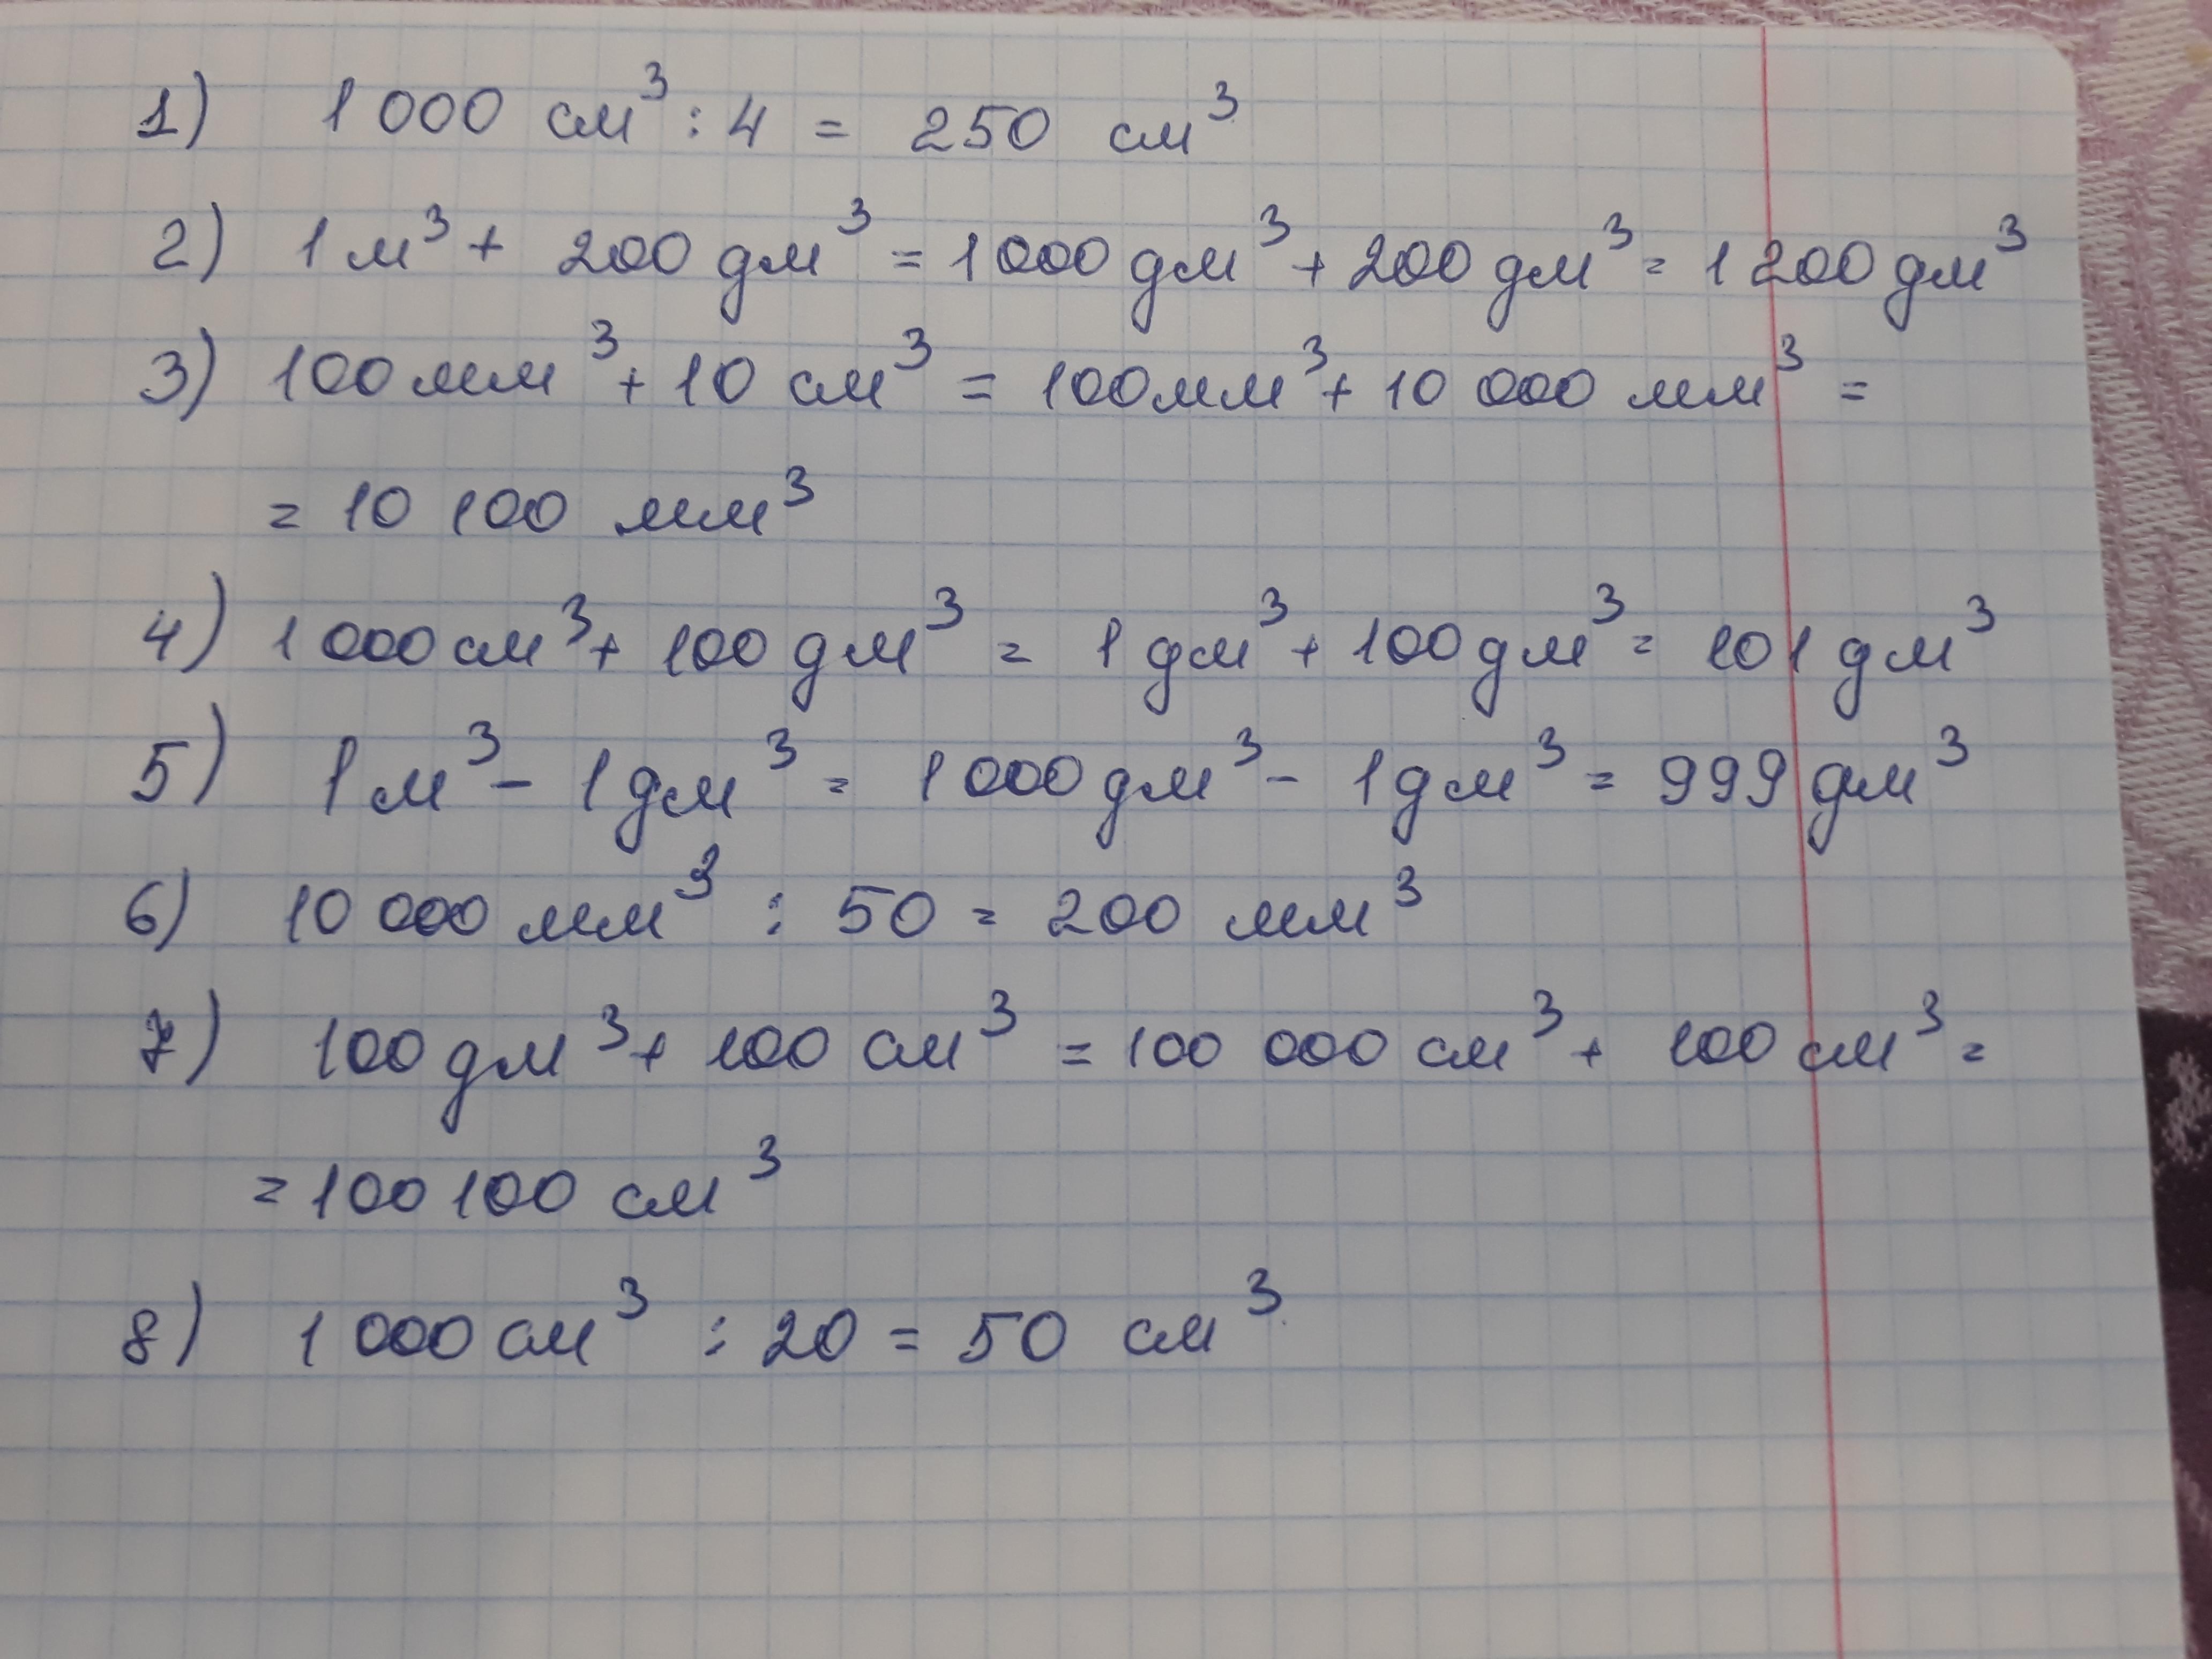 1) 1 000 см³ : 4 = 250 см³
2) 1 м³ + 200 дм³ = 1 000 дм³ + 200 дм³ = 1 200 дм³
3) 100 мм³ + 10 см³ = 100 мм³ + 10 000 мм³ =
= 10 100 мм³
4) 1 000 см³ + 100 дм³ = 1 дм³ + 100 дм³ = 101 дм³
5) 1 м³ - 1 дм³ = 1 000 дм³ - 1 дм³ = 999 дм³
6) 10 000 мм³ : 50 = 200 мм³
7) 100 дм³ + 100 см³ = 100 000 см³ + 100 см³ =
= 100 100 см³
8) 1 000 см³ : 20 = 50 см³